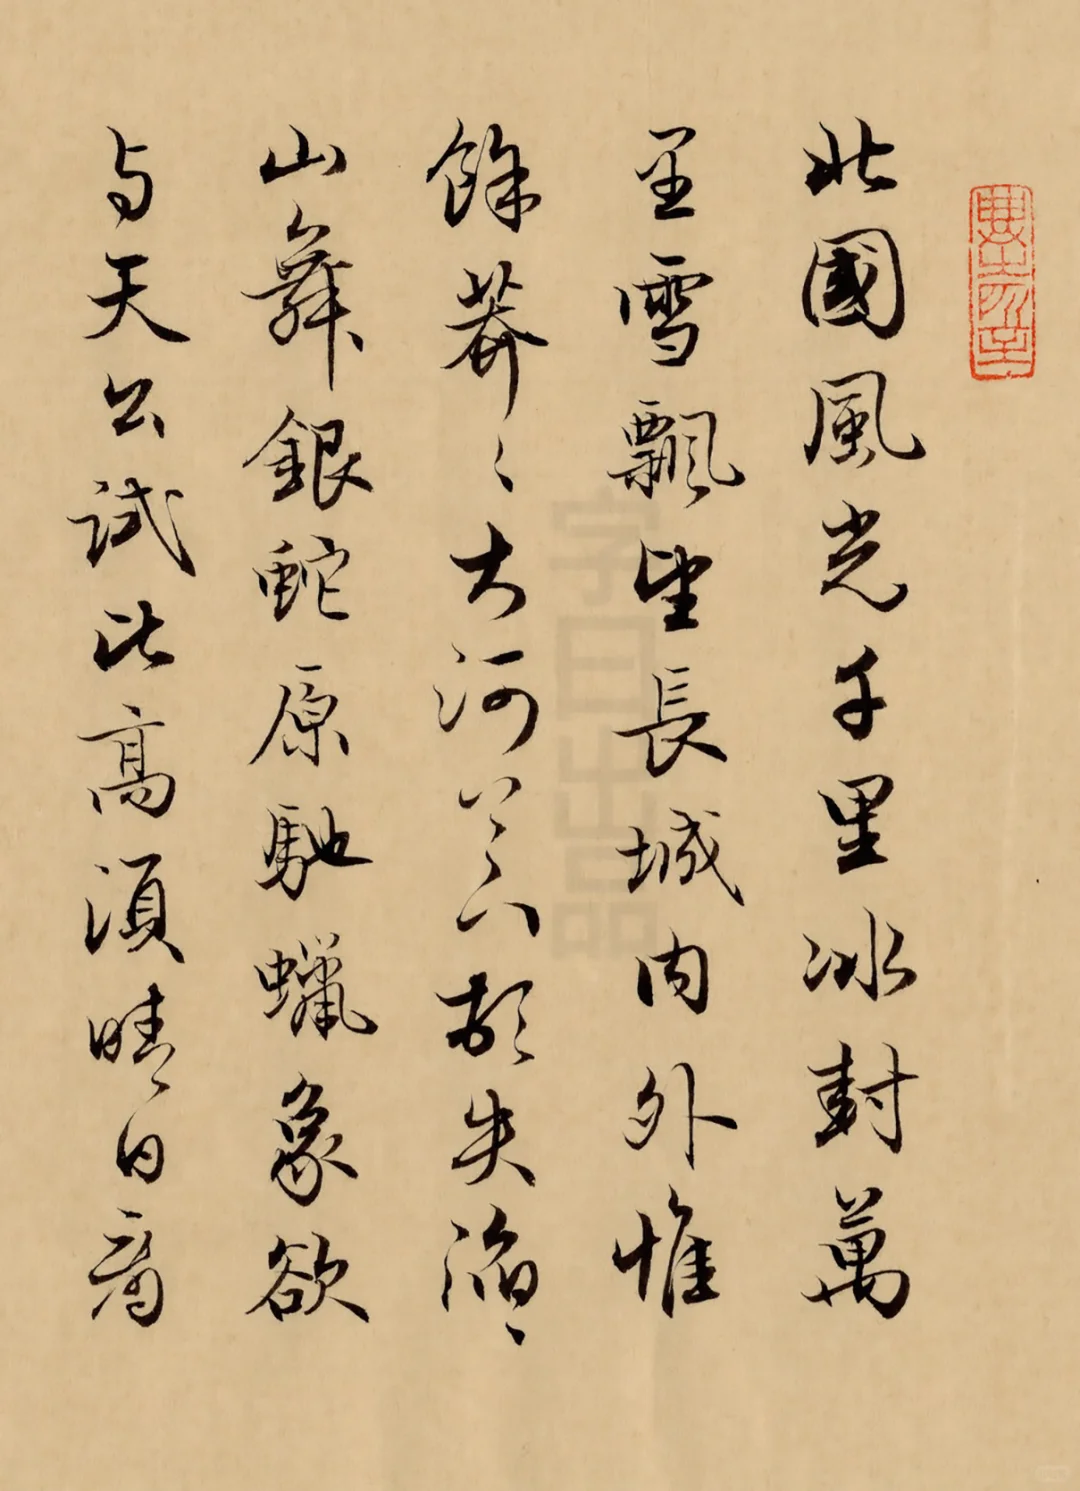 北國風光千里冰封萬
里雪飄望長城内外惟
餘莽〻大河上下頓失滔〻
山舞銀蛇原馳蠟象欲
与天公試比高須晴日看